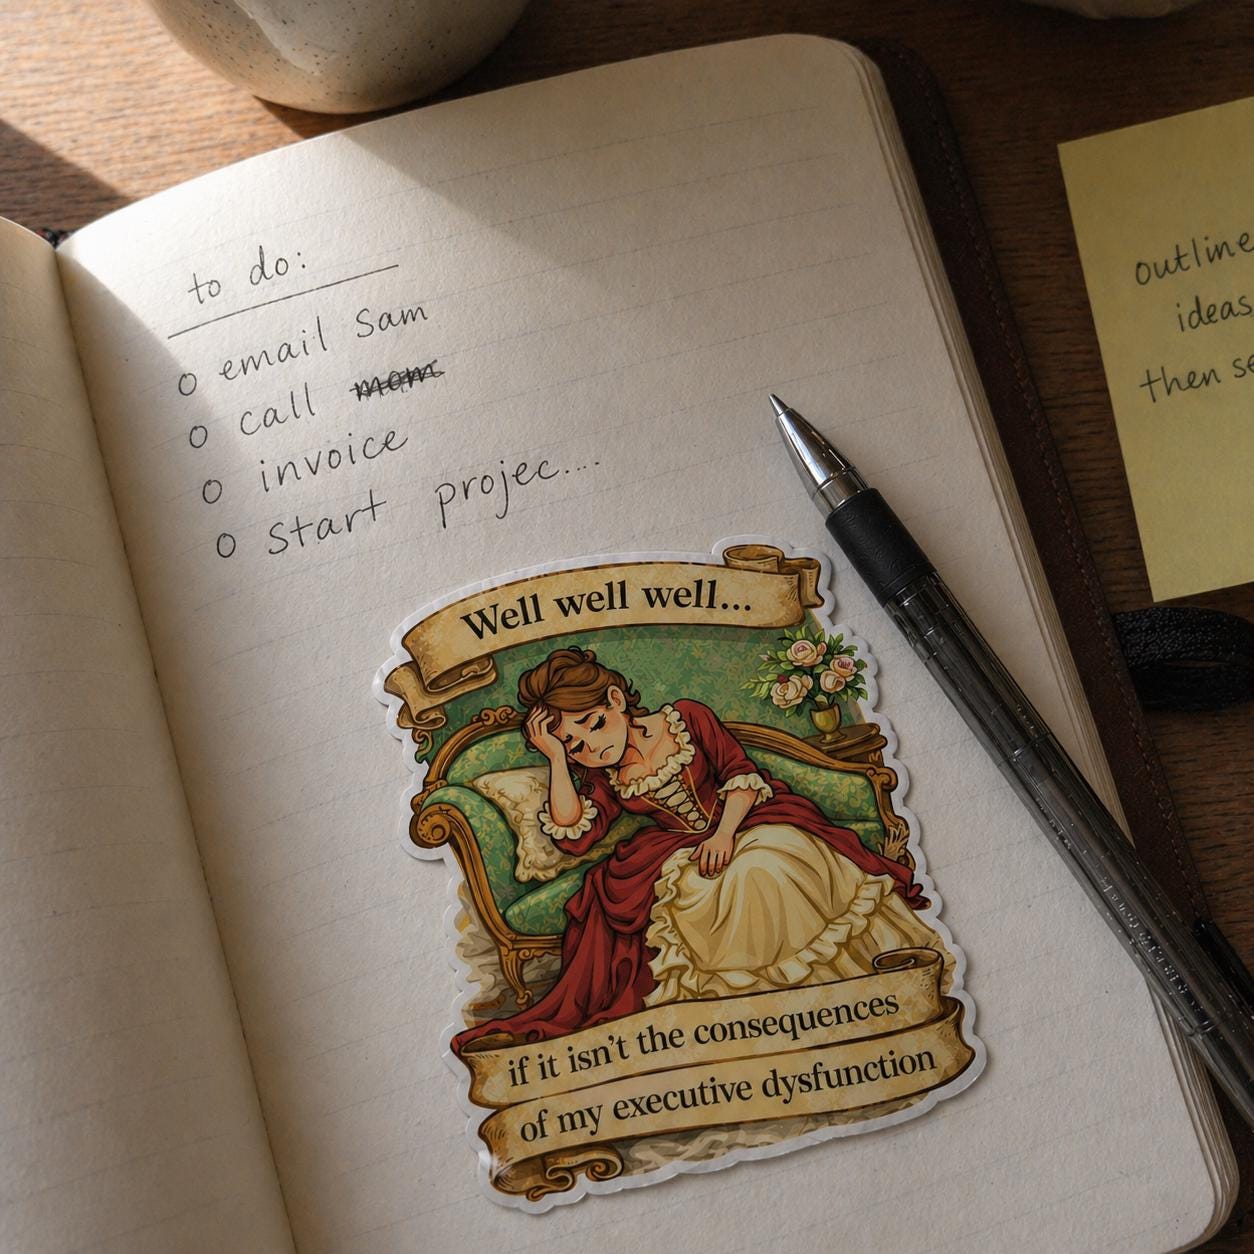 to do:
email Sam
call mom
invoice
start projec....
outline
ideas,
then se
Well well well...
if it isn't the consequences
of my executive dysfunction